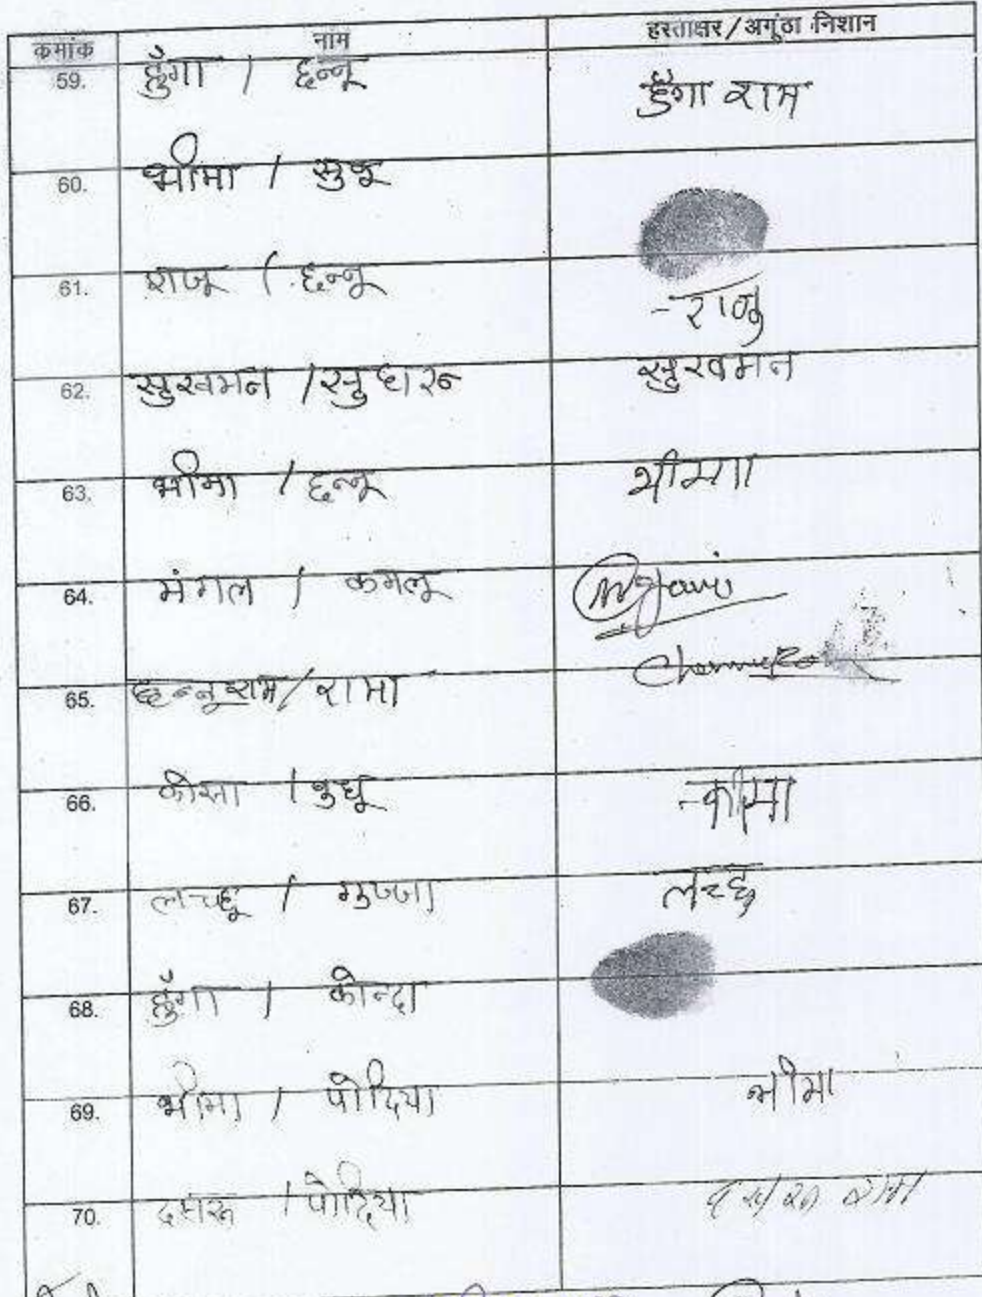 क्रमांक नाम हस्ताक्षर/अगूंठा निशान
59. हुँगा / छन्नू हुँगा राम
60. भीमा / सुधू
61. राजू / छन्नू राजु
62. सुखमन / सुधारू सुखमन
63. भीमा / छन्नू भीमा
64. मंगल / कमलू
65. छन्नूराम / रामा
66. कोसा / बुधू
67. लच्छू / गुज्जा लच्छु
68. हुँगा / कोन्दा
69. भीमा / पोदिया भीमा
70. दसरू / पोदिया